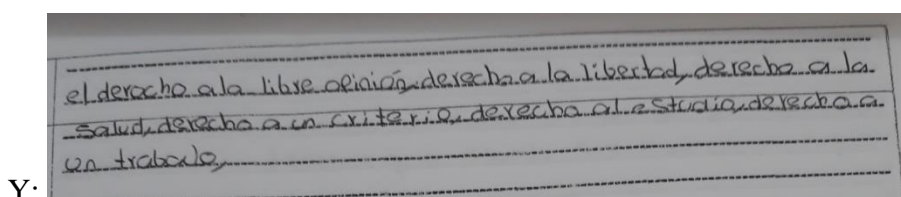 el derocho ala libre opinión, derecho a la libertad, derecho a la
salud, derecho a un criterio, derecho al estudio, derecho a
un trabalo,
Y: